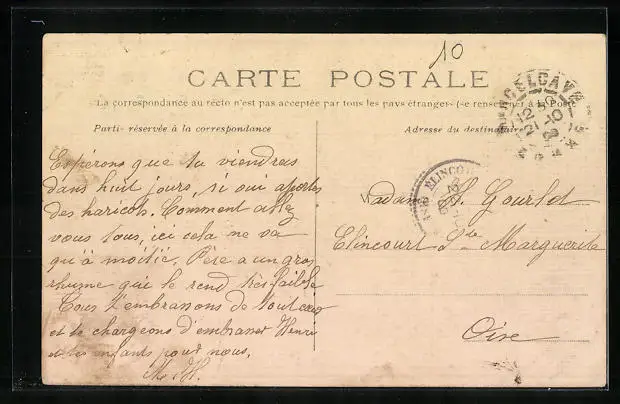 10
CARTE POSTALE
La correspondance au recto n'est pas acceptée par tous les pays étrangers (se renseigner à la Poste
Partie réservée à la correspondance
Adresse du destinataire
MARCELCAVE
ELINCOURT
Espérons que tu viendras
dans huit jours, si oui apportes
des haricots. Comment allez
vous tous, ici cela ne va
qu'à moitié. Père a un gros
rhume qui le rend très faible
Tous t'embrassons de tout cœur
et te chargeons d'embrasser Henri
et les enfants pour nous.
Madame S. Gourlet
Elincourt Ste Marguerite
Oise